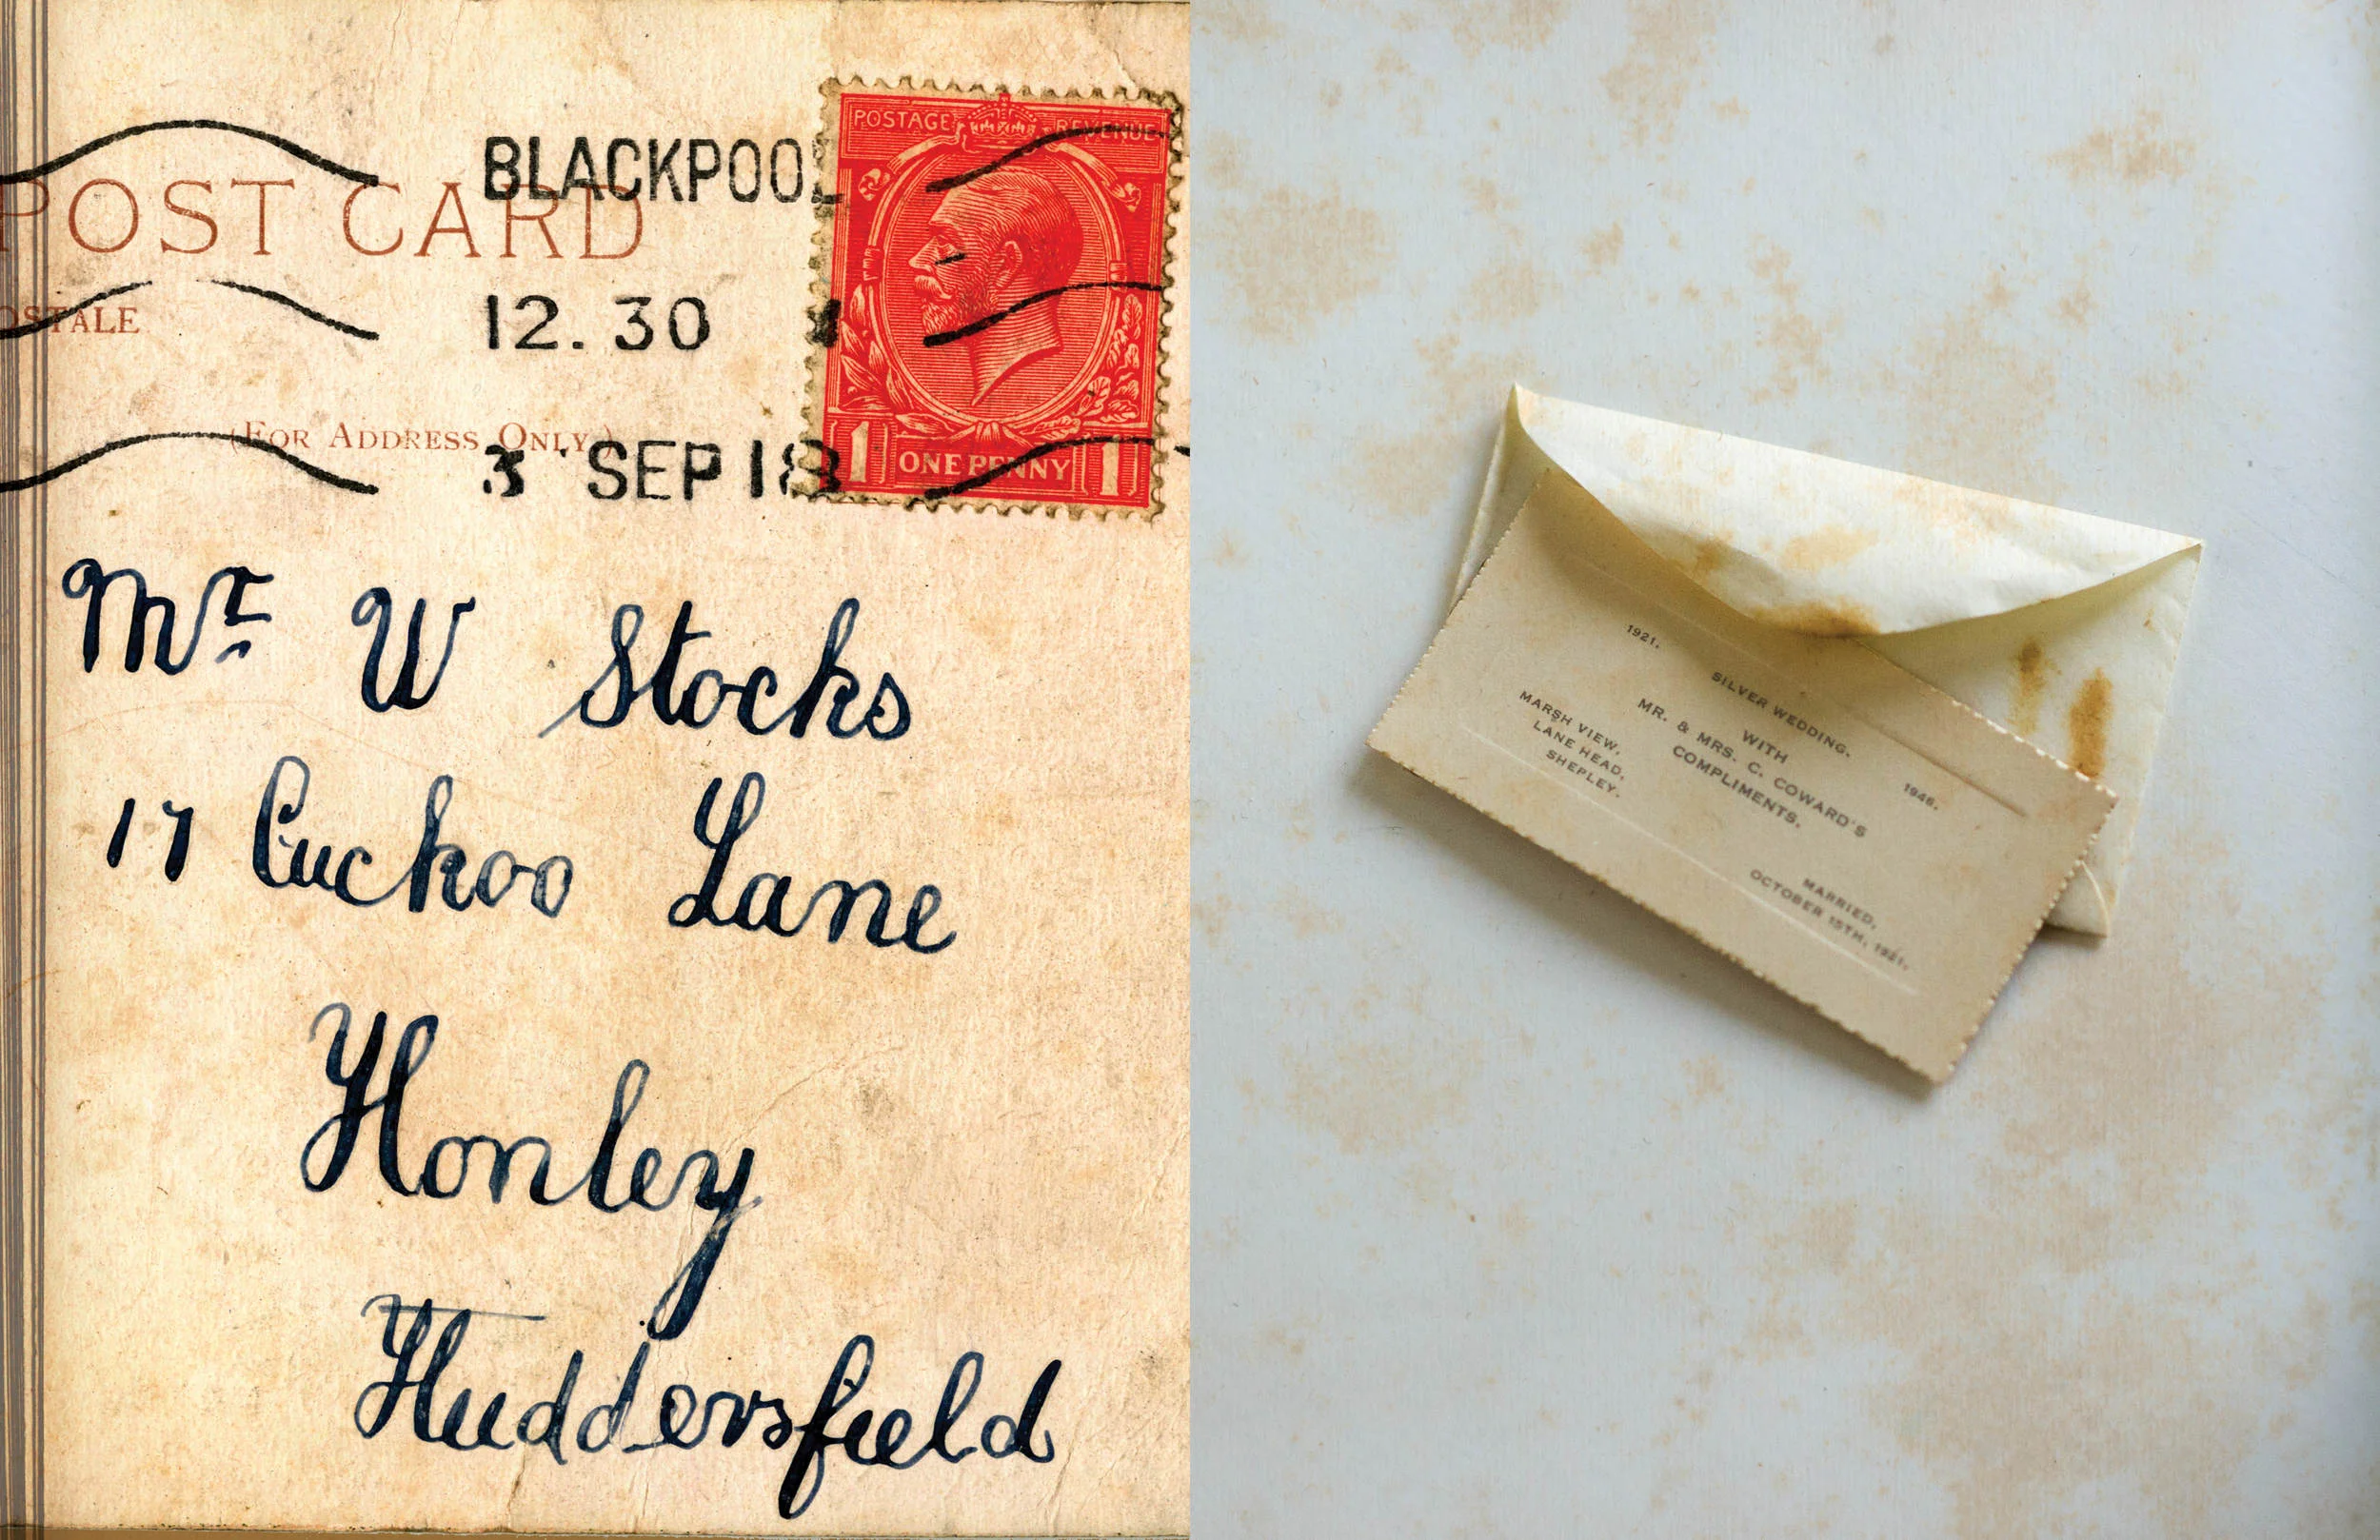 POST CARD
OSTALE
(FOR ADDRESS ONLY.)
BLACKPOOL
12. 30
3 SEP 18
POSTAGE REVENUE
1 ONE PENNY 1
Mr W Stocks
17 Cuckoo Lane
Honley
Huddersfield
1921. 1946.
SILVER WEDDING.
WITH
MR. & MRS. C. COWARD'S
COMPLIMENTS.
MARSH VIEW,
LANE HEAD,
SHEPLEY.
MARRIED,
OCTOBER 15TH, 1921.